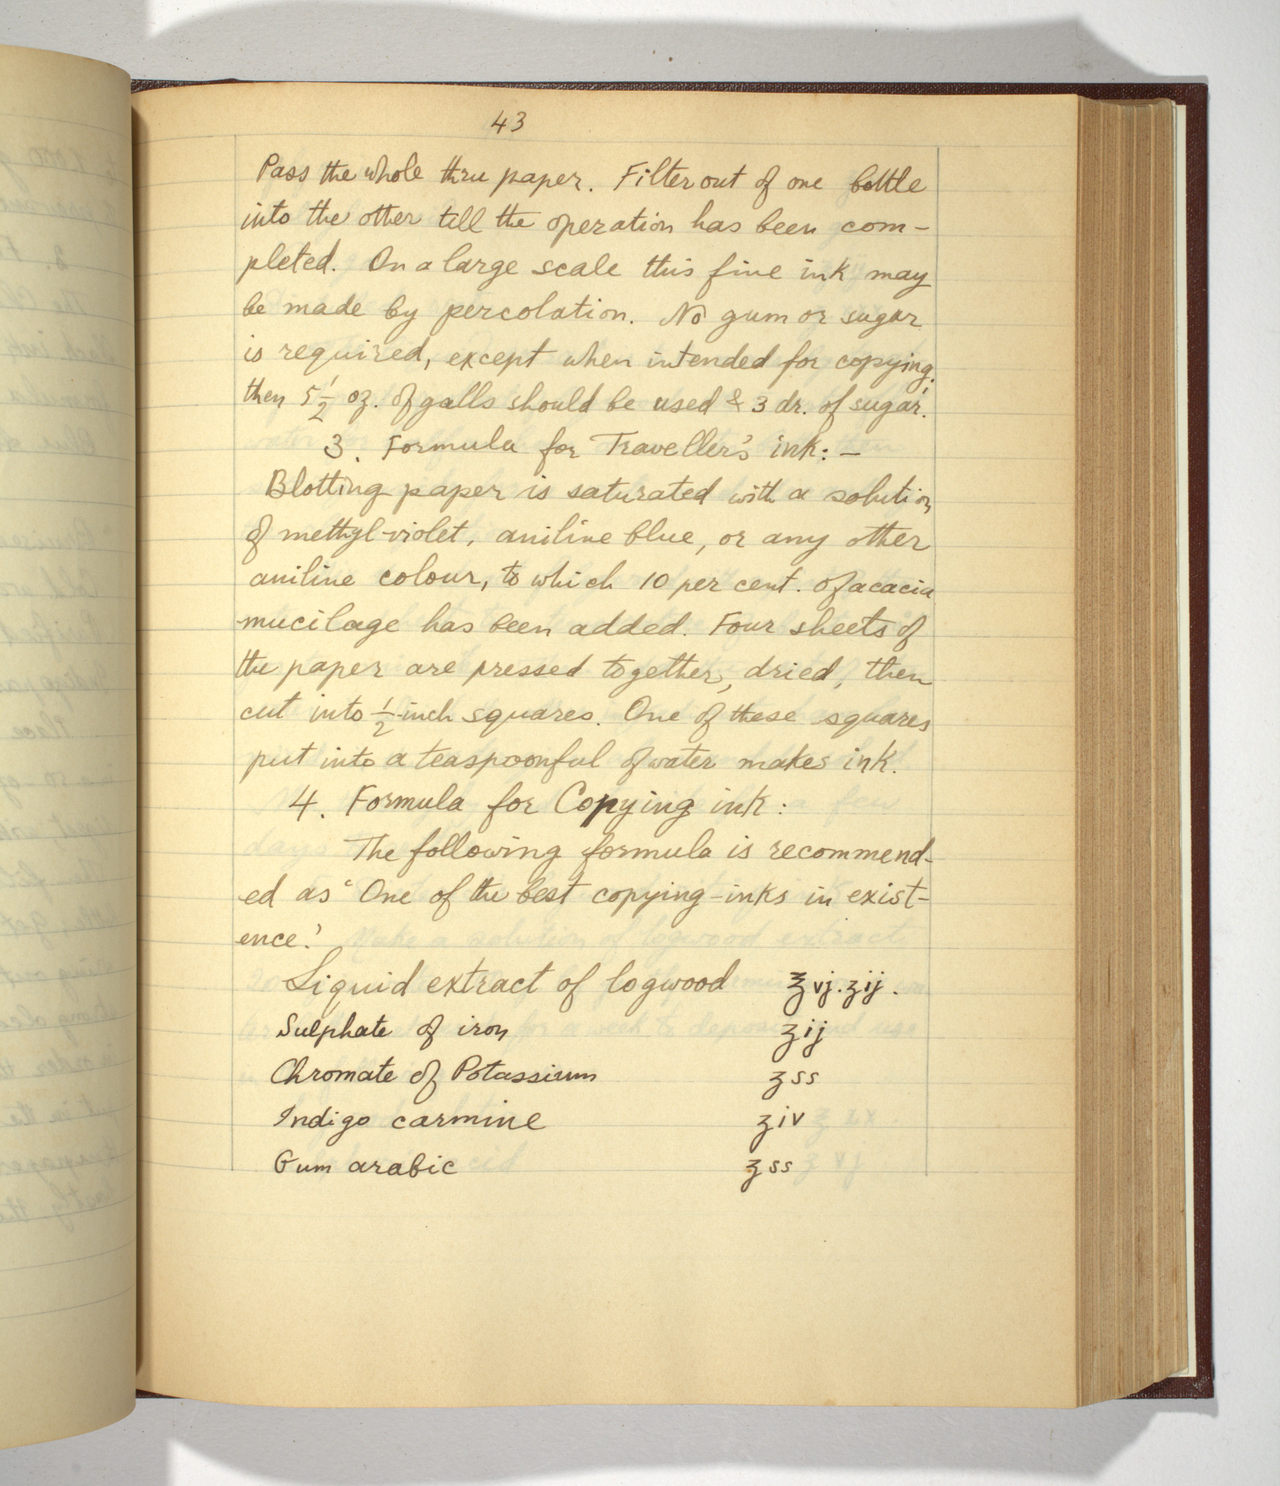 43
Pass the whole thru paper. Filter out of one bottle
into the other till the operation has been com-
pleted. On a large scale this fine ink may
be made by percolation. No gum or sugar
is required, except when intended for copying;
then 5 1/2 oz. of galls should be used & 3 dr. of sugar.
3. Formula for Traveller's ink: —
Blotting paper is saturated with a solution
of methyl-violet, aniline blue, or any other
aniline colour, to which 10 per cent. of acacia
mucilage has been added. Four sheets of
the paper are pressed together, dried, then
cut into 1/2-inch squares. One of these squares
put into a teaspoonful of water makes ink.
4. Formula for Copying ink:
The following formula is recommend-
ed as 'One of the best copying-inks in exist-
ence.'
Liquid extract of logwood ℥vj.ʒij.
Sulphate of iron ʒij
Chromate of Potassium ʒss
Indigo carmine ʒiv
Gum arabic ʒss